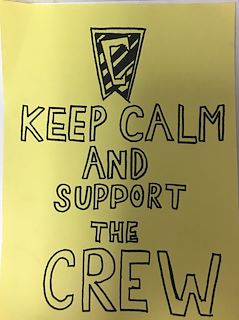 C
KEEP CALM
AND
SUPPORT
THE
CREW